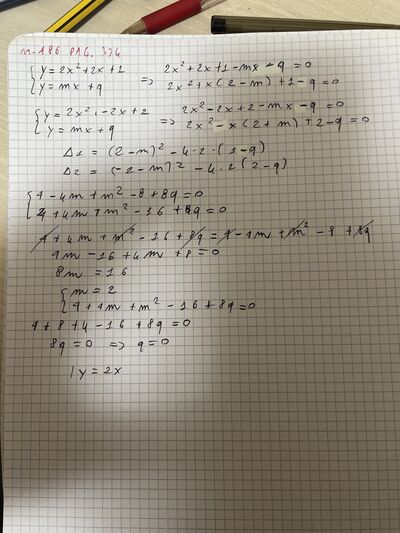 n. 186 PAG. 374
{ y = 2x² + 2x + 1 => 2x² + 2x + 1 - mx - q = 0
{ y = mx + q 2x² + x(2 - m) + 1 - q = 0
{ y = 2x² - 2x + 2 => 2x² - 2x + 2 - mx - q = 0
{ y = mx + q 2x² - x(2 + m) + 2 - q = 0
Δ1 = (2 - m)² - 4·2·(1 - q)
Δ2 = (-2 - m)² - 4·2(2 - q)
{ 4 - 4m + m² - 8 + 8q = 0
{ 4 + 4m + m² - 16 + 8q = 0
4 + 4m + m² - 16 + 8q = 4 - 4m + m² - 8 + 8q
4m - 16 + 4m + 8 = 0
8m = 16
{ m = 2
{ 4 + 4m + m² - 16 + 8q = 0
4 + 8 + 4 - 16 + 8q = 0
8q = 0 => q = 0
/ y = 2x